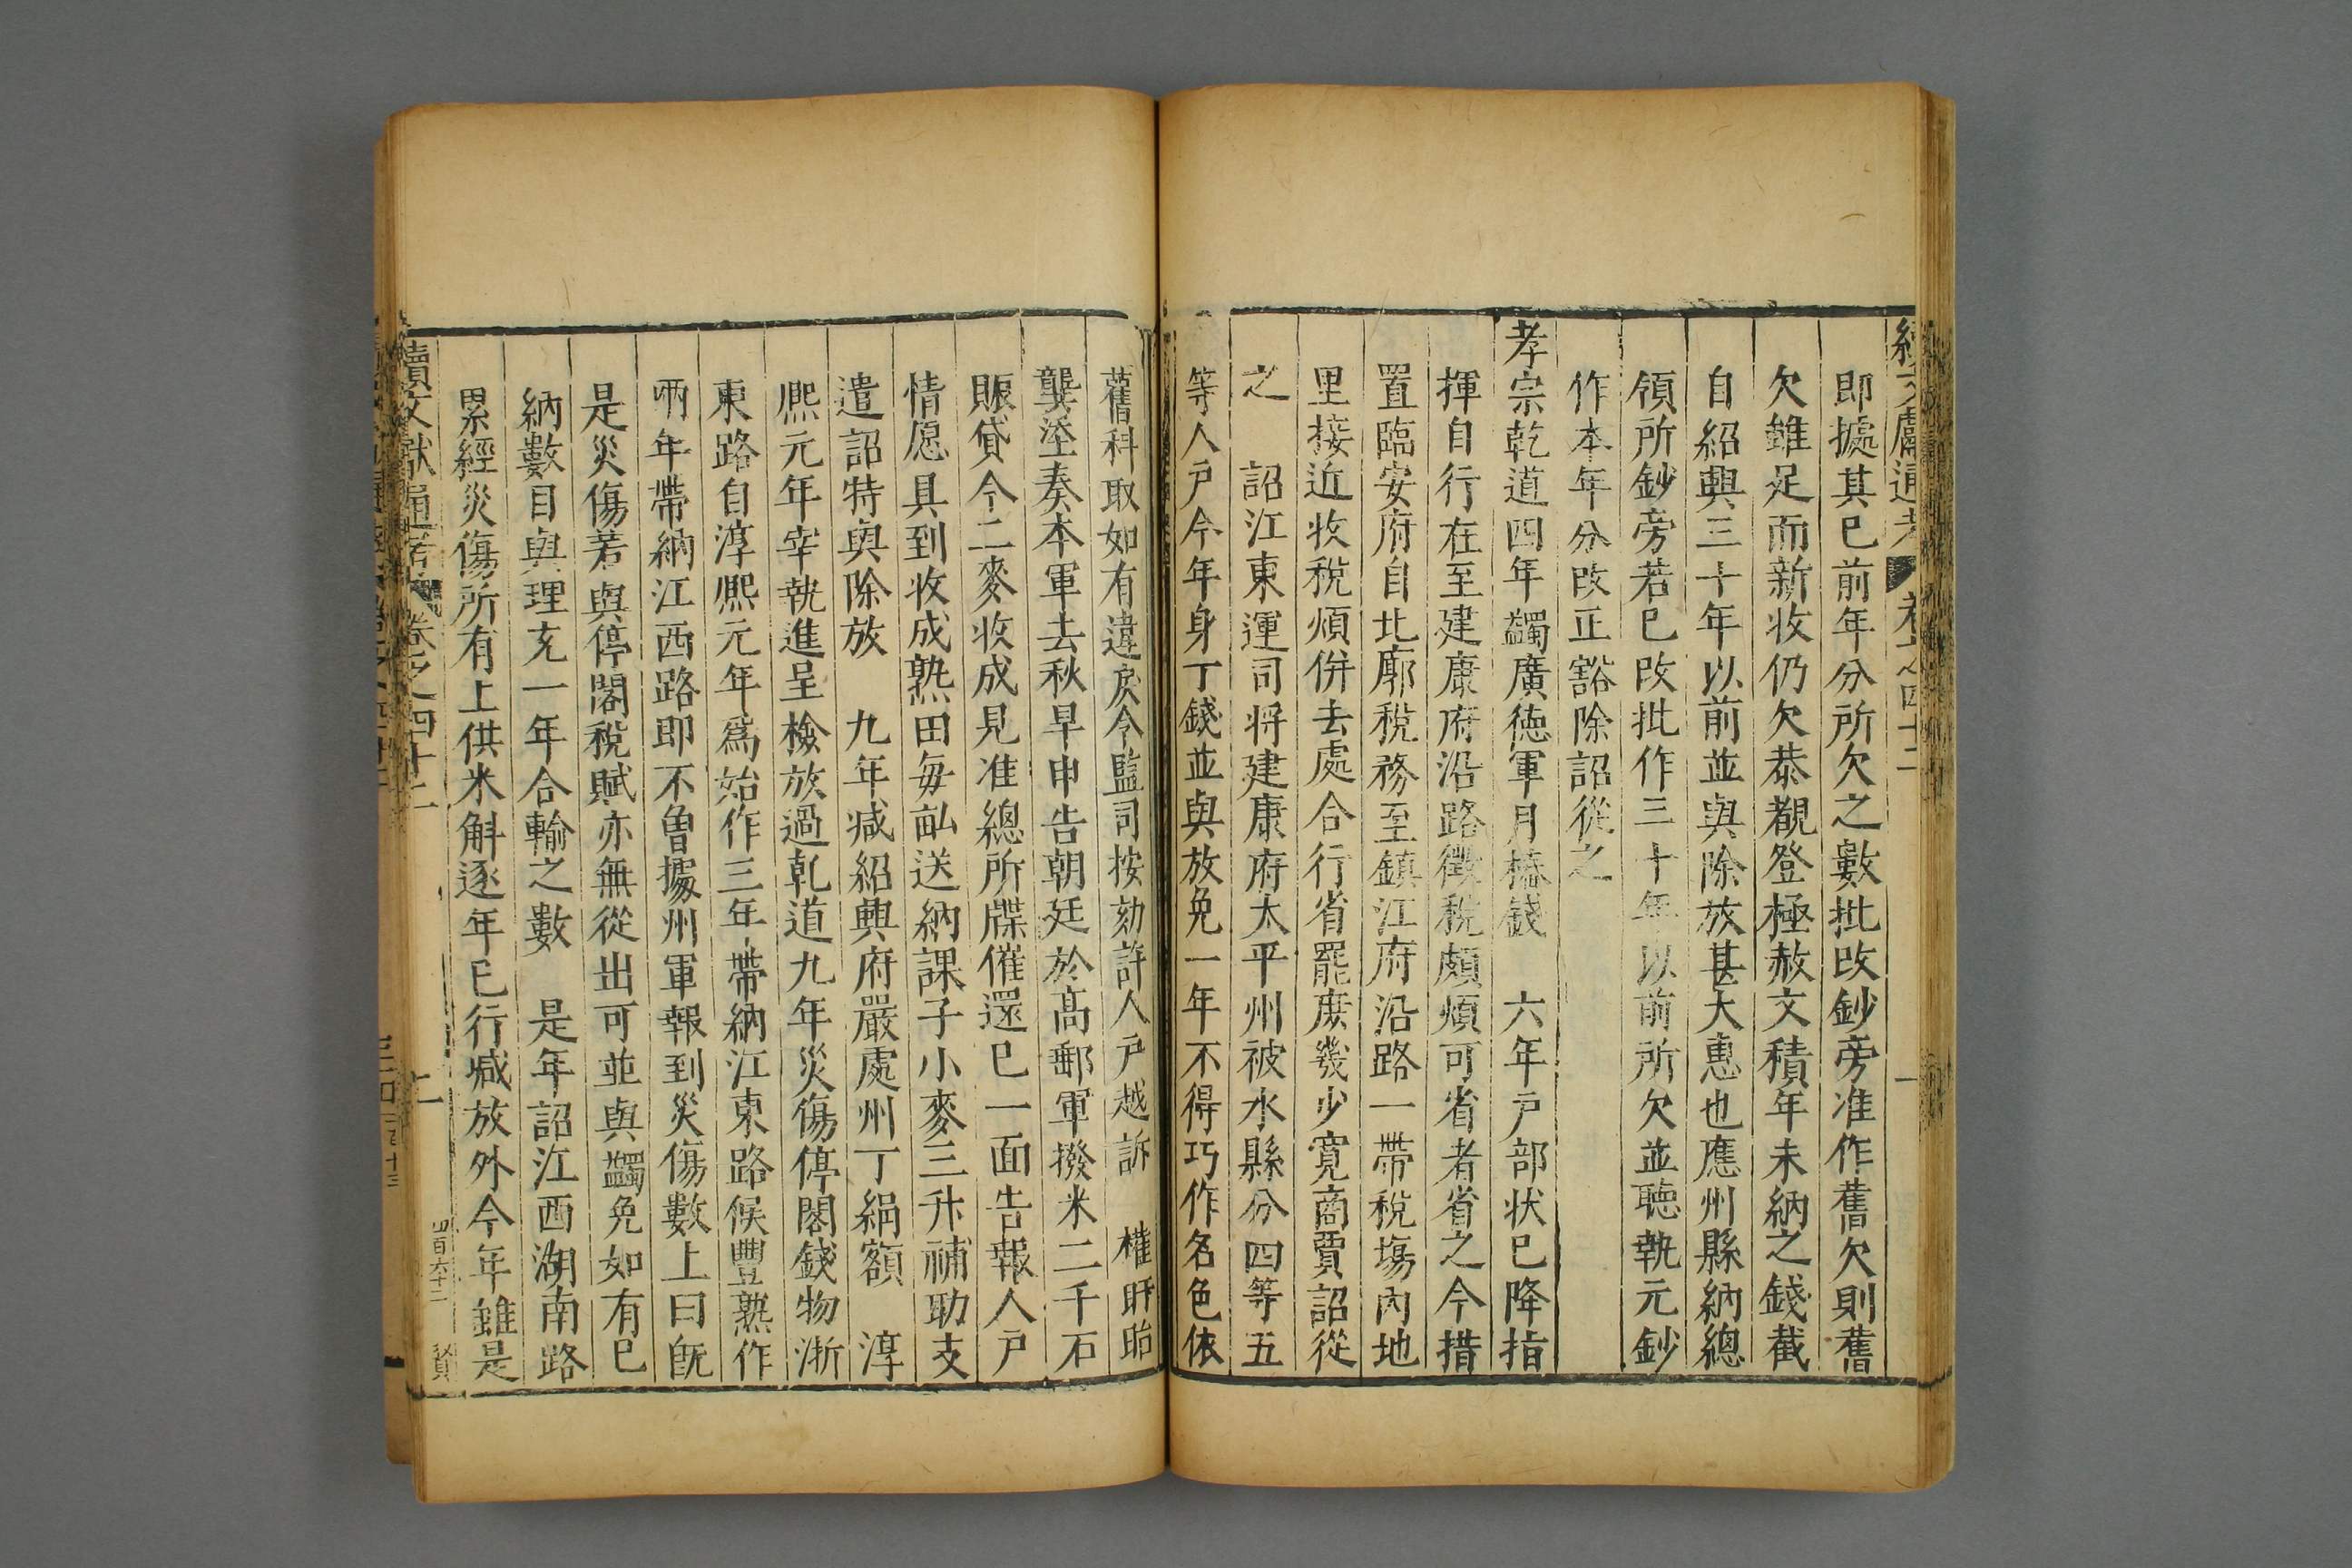 即據其已前年分所欠之數批改鈔旁准作舊欠則舊
欠雖足而新收仍欠恭覩登極赦文積年未納之錢截
自紹興三十年以前並與除放甚大惠也應州縣納總
領所鈔旁若已改批作三十年以前所欠並聽執元鈔
作本年分改正豁除詔從之
孝宗乾道四年蠲廣德軍月樁錢 六年戶部状已降指
揮自行在至建康府沿路徵稅頗煩可省者省之今措
置臨安府自北廓稅務至鎮江府沿路一帶稅場內地
里接近收稅煩併去處合行省罷庶幾少寛商賈詔從
之 詔江東運司将建康府太平州被水縣分四等五
等人戶今年身丁錢並與放免一年不得巧作名色依
舊科取如有違戾令監司按劾許人戶越訴 權盱眙
龔塗奏本軍去秋旱申告朝廷於髙郵軍撥米二千石
賑貸今二麥收成見准總所牒催還已一面告報人戶
情愿具到收成熟田每畆送納課子小麥三升補助支
遣詔特與除放 九年减紹興府嚴處州丁絹額 淳
熈元年宰執進呈檢放過乾道九年災傷停閣錢物浙
東路自淳熈元年爲始作三年帶納江東路候豐熟作
兩年帶納江西路即不曽據州軍報到災傷數上曰既
是災傷若與停閣稅賦亦無從出可並與蠲免如有已
納數目與理充一年合輸之數 是年詔江西湖南路
累經災傷所有上供米斛逐年已行减放外今年雖是
續文獻通考 卷之四十二 二 四百六十二